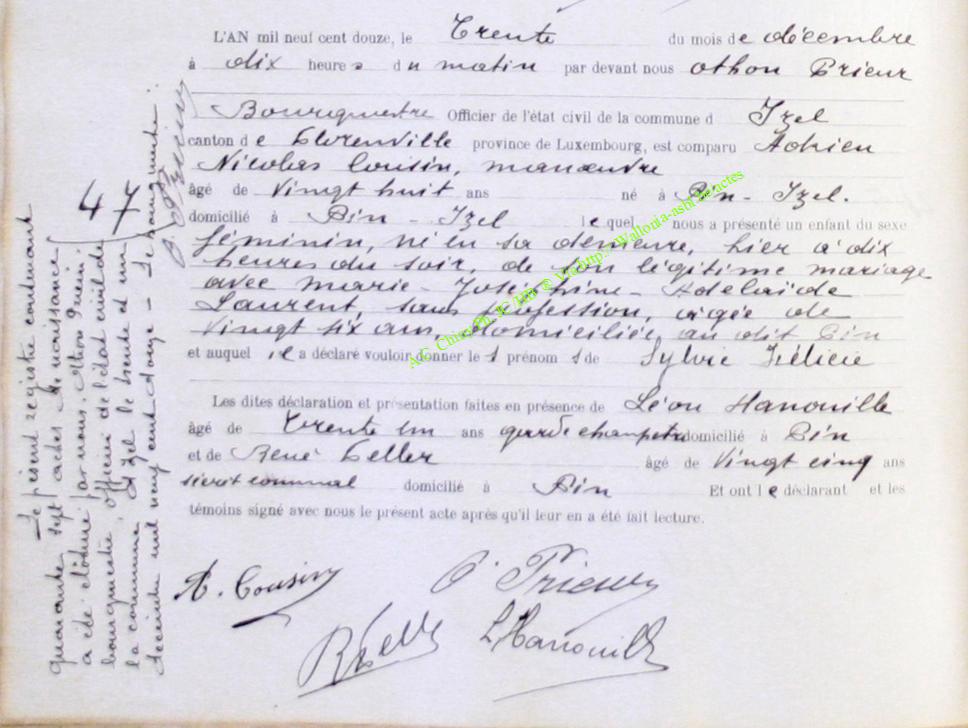 L'AN mil neuf cent douze, le Trente du mois de décembre
à dix heures du matin par devant nous Othon Prieur
Bourgmestre Officier de l'état civil de la commune d Izel
canton de Florenville province de Luxembourg, est comparu Adrien
Nicolas Cousin, manœuvre
âgé de Vingt huit ans né à Pin - Izel.
domicilié à Pin - Izel lequel nous a présenté un enfant du sexe
féminin, né en sa demeure, hier à dix
heures du soir, de son légitime mariage
avec Marie - Joséphine - Adelaïde
Laurent, sans profession, agée de
Vingt six ans, domiciliée au dit Pin
et auquel il a déclaré vouloir donner les prénoms de Sylvie Félicie
Les dites déclaration et présentation faites en présence de Léon Hanouille
âgé de Trente un ans garde champetre domicilié à Pin
et de René Feller âgé de Vingt cinq ans
domicilié à Pin Et ont le déclarant et les
témoins signé avec nous le présent acte après qu'il leur en a été fait lecture.
A. Cousin
O. Prieur
R Feller
L Hanouille
47
Le présent registre contenant
quarante sept actes de naissance
a été clôturé par nous, Othon Prieur
bourgmestre, officier de l'état civil de
la commune d'Izel le trente et un
décembre mil neuf cent douze - le bourgmestre:
O. Prieur